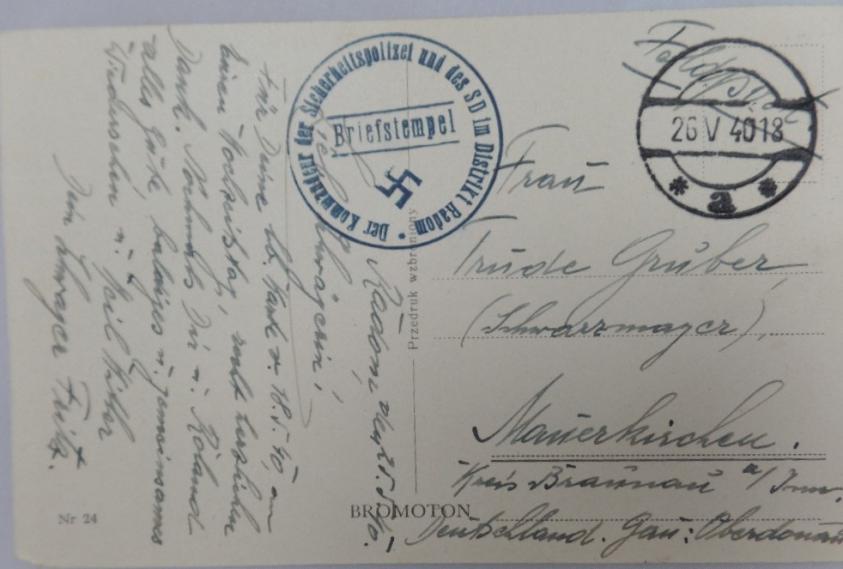 Radom, den 25.5.40.
Liebe Schwägerin!
Für Deine lb. Karte v. 18.5.40, an
meinen Hochzeitstag, recht herzlichen
Dank. Nochmals Dir u. Roland
alles Gute, baldiges u. gemeinsames
Wiedersehen u. Heil Hitler
Dein Schwager Fritz.
Der Kommandeur der Sicherheitspolizei und des SD im Distrikt Radom
Briefstempel
Feldpost
26 V 40 18
* a *
Frau
Trude Gruber
(Schwarzmayer),
Mauerkirchen.
Kreis Braunau a/Inn.
Deutschland. Gau: Oberdonau
Przedruk wzbroniony
Nr 24
BROMOTON